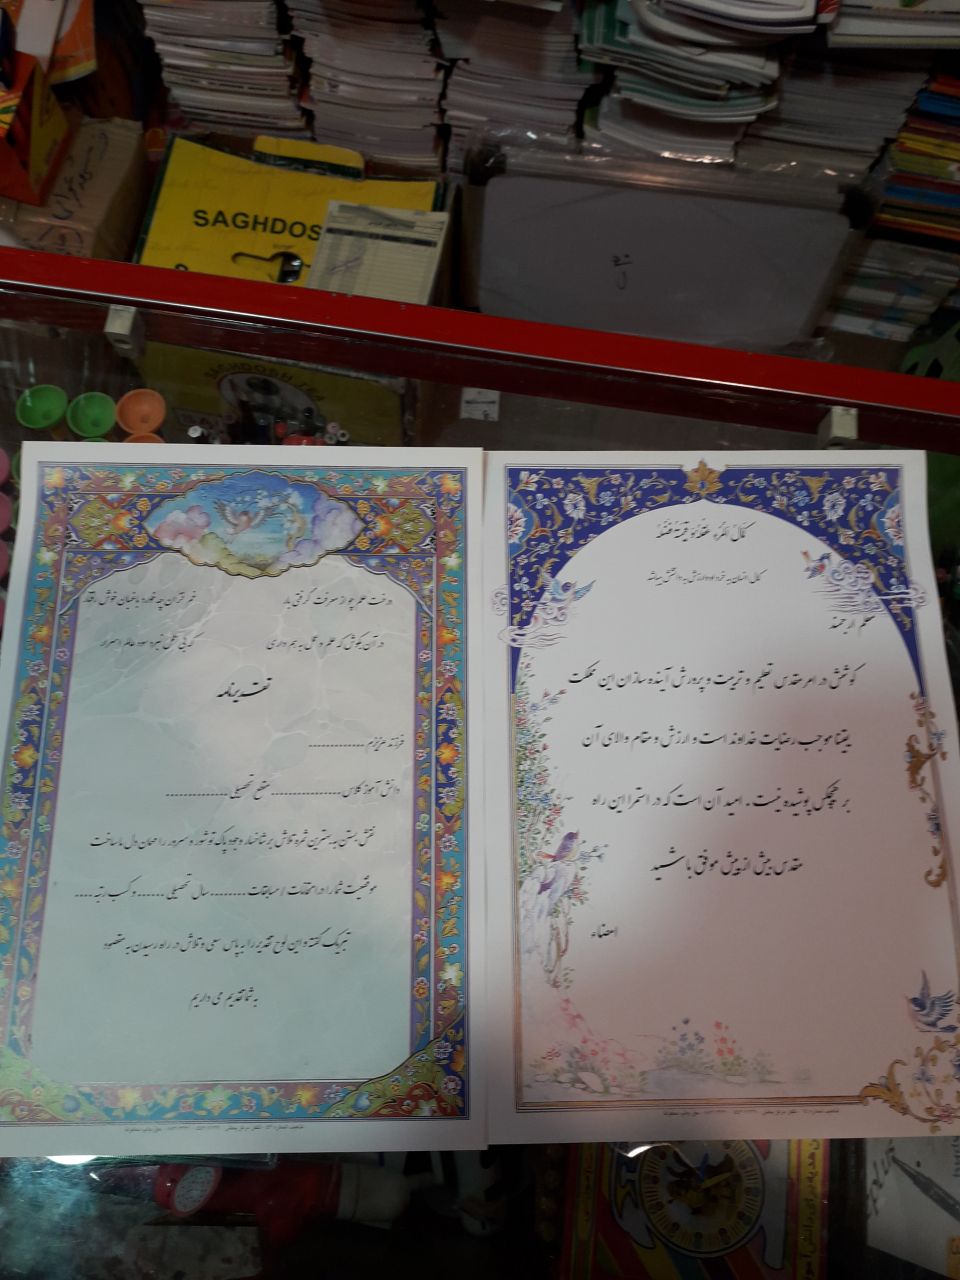 SAGHDOS
درخت علم چو از معرفت گرفتی بار
خبر تو را چه خورد باغبان خوش رفتار
در آن بکوش که علم و عمل به هم داری
که بی عمل نبرد سود عالم اسرار
تقدیرنامه
فرزند عزیزم ..............
دانش آموز کلاس ................. مقطع تحصیلی ................
نقش بستن به بهترین ثمره تلاش بر شاخسار وجود پاک تو شور و سرور را مهمان دل ما ساخت
موفقیت شما را در امتحانات / مسابقات ......... سال تحصیلی ...... و کسب رتبه ....
تبریک گفته و این لوح تقدیر را به پاس سعی و تلاش در راه رسیدن به مقصود
به شما تقدیم می داریم
کَمالُ المَرْءِ عَقْلُهُ وَ قیمَتُهُ فَضْلُهُ
کمال انسان به خرد او و ارزش به دانشش میباشد
معلم ارجمند
کوشش در امر مقدس تعلیم و تربیت و پرورش آینده سازان این مملکت
یقینا موجب رضایت خداوند است و ارزش و مقام والای آن
بر هیچکس پوشیده نیست . امید آن است که در استمرا این راه
مقدس بیش از پیش موفق باشید
امضاء